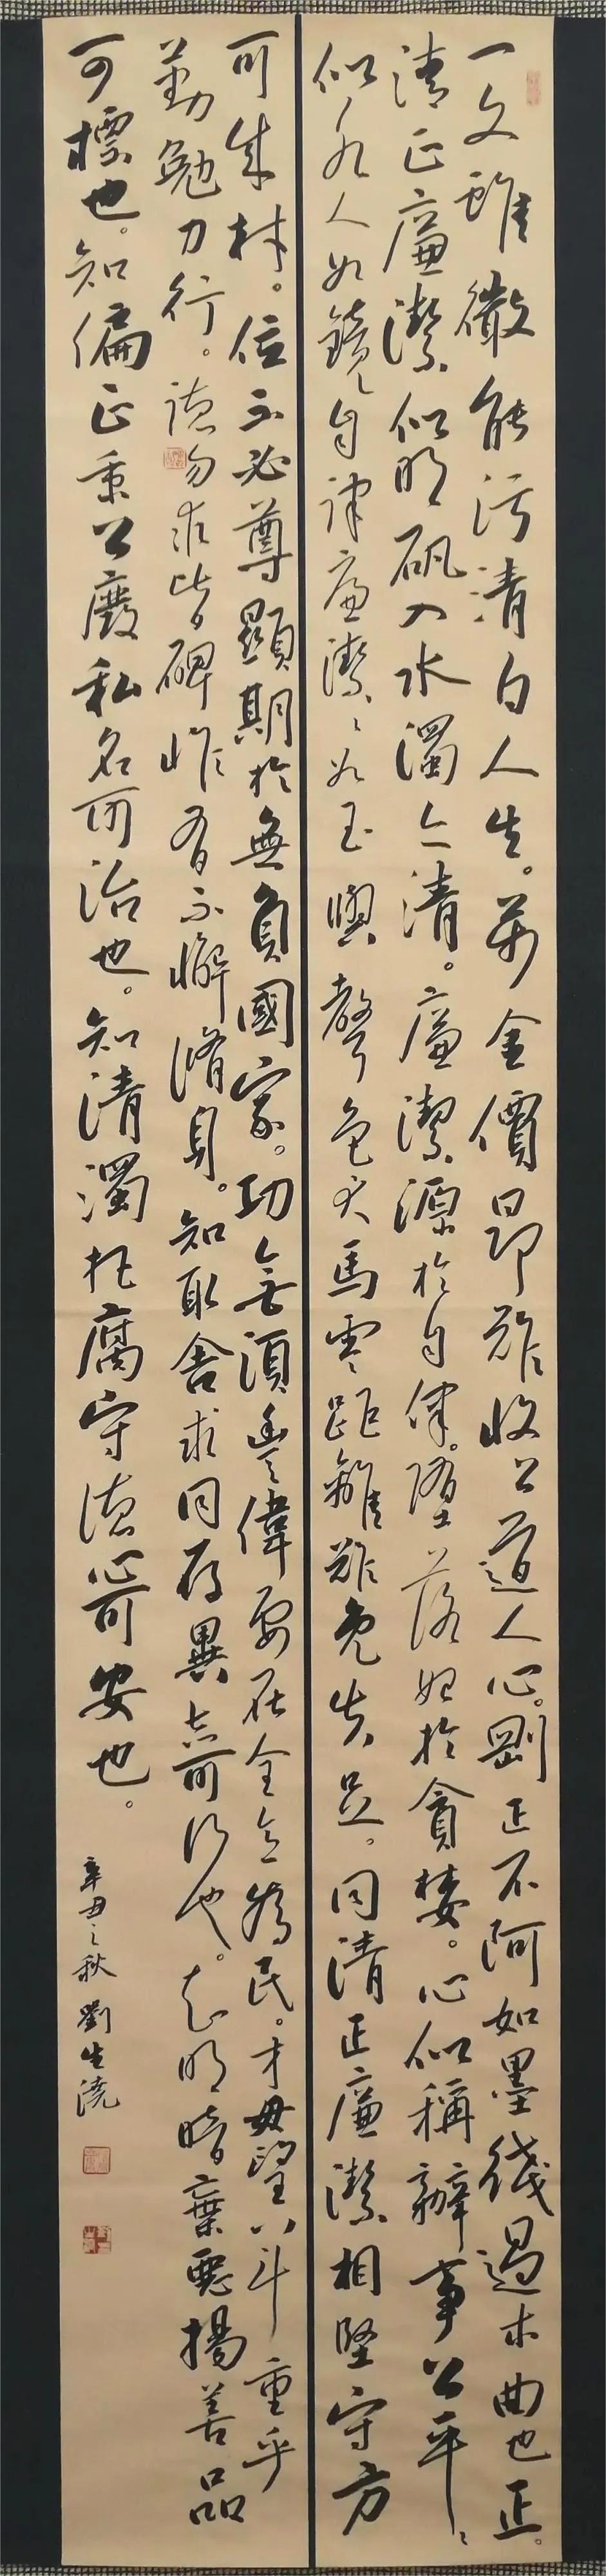 一文雖微能污清白人生。萬金價昂難收公道人心。剛正不阿如墨綫過木曲也正。
清正廉潔似明矾入水濁亦清。廉潔源於自律。墮落始於貪婪。心似稱辦事公平、
似水人如鏡自律廉潔、如玉與聲色犬馬零距離難免失足。同清正廉潔相堅守方
可成材。位不必尊顯期於無負國家。功無須豐偉要在全意為民。才毋望八斗重乎
勤勉力行。德勿求皆碑惟有不懈脩身。知取舍求同存異言可行也。知明暗棄惡揚善品
可標也。知偏正秉公廢私名可治也。知清濁拒腐守德心可安也。
辛丑之秋 劉生澆